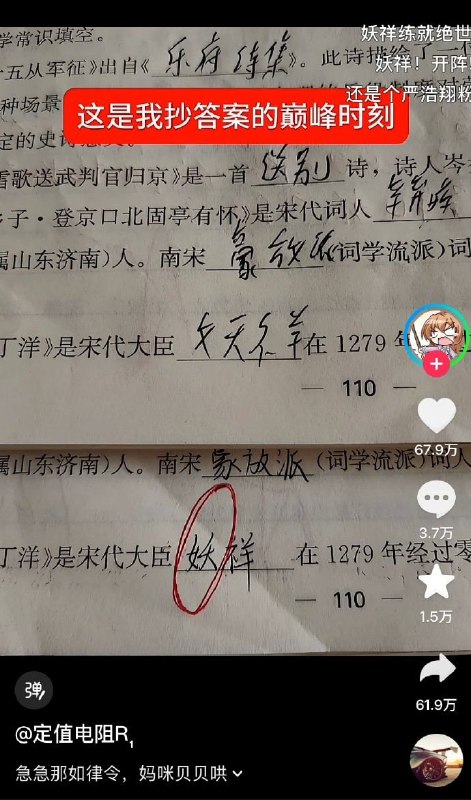 学常识填空。
妖祥练就绝世
五从军征》出自《乐府诗集》。此诗描绘了一
妖祥！开阵！
种场景
还是个严浩翔粉
这是我抄答案的巅峰时刻
定的史
雪歌送武判官归京》是一首送别诗，诗人岑
乡子·登京口北固亭有怀》是宋代词人辛弃疾
属山东济南）人。南宋豪放派(词学流派)词
丁洋》是宋代大臣文天祥在1279年
— 110 —
67.9万
属山东济南）人。南宋豪放派(词学流派)词人
3.7万
丁洋》是宋代大臣妖祥在1279年经过零
1.5万
— 110 —
61.9万
弹
@定值电阻R₁
急急那如律令，妈咪贝贝哄